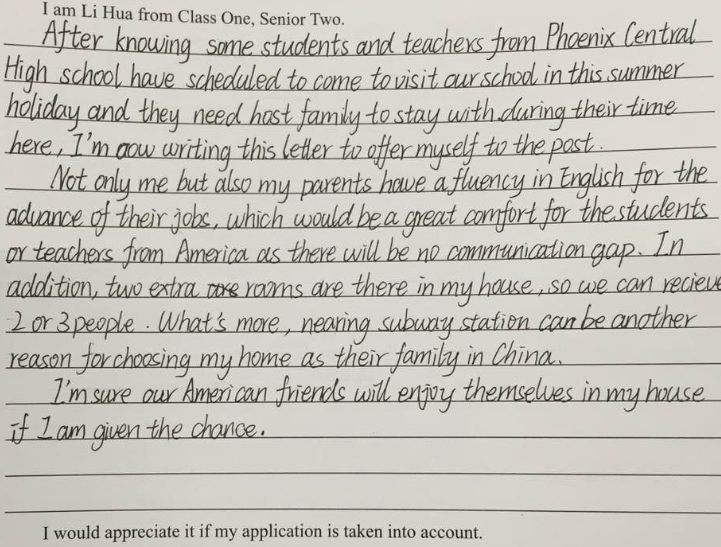 I am Li Hua from Class One, Senior Two.
After knowing some students and teachers from Phoenix Central
High school have scheduled to come to visit our school in this summer
holiday and they need host family to stay with during their time
here, I'm now writing this letter to offer myself to the post.
Not only me but also my parents have a fluency in English for the
advance of their jobs, which would be a great comfort for the students
or teachers from America as there will be no communication gap. In
addition, two extra rooms are there in my house, so we can recieve
2 or 3 people. What's more, nearing subway station can be another
reason for choosing my home as their family in China.
I'm sure our American friends will enjoy themselves in my house
if I am given the chance.
I would appreciate it if my application is taken into account.